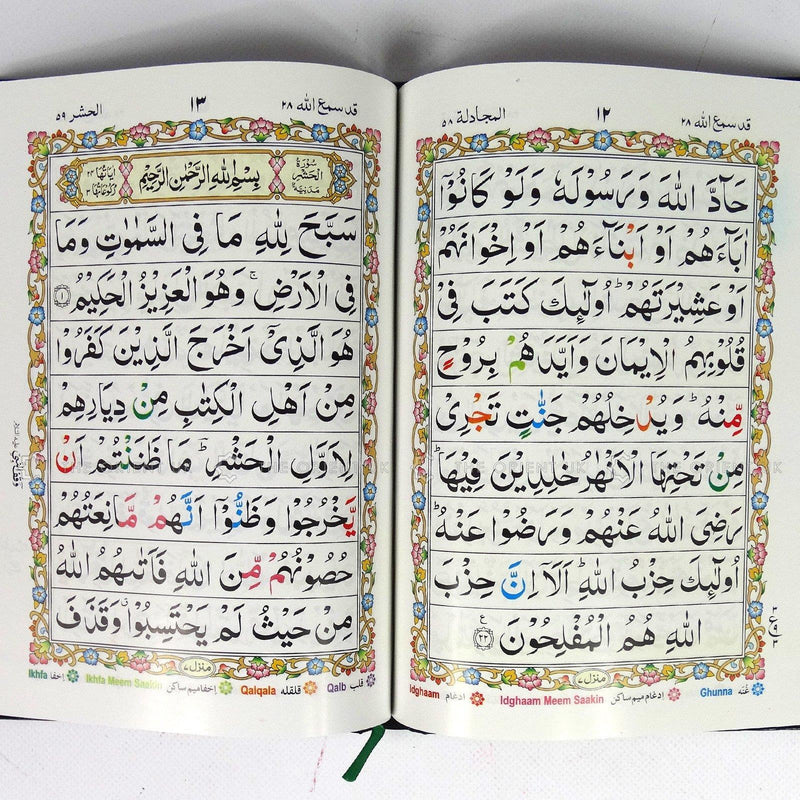 قد سمع الله ٢٨
١٢
المجادلة ٥٨
حَآدَّ اللّٰهَ وَرَسُوْلَهٗ وَلَوْ كَانُوْٓا
اٰبَآءَهُمْ اَوْ اَبْنَآءَهُمْ اَوْ اِخْوَانَهُمْ
اَوْ عَشِيْرَتَهُمْ ؕ اُولٰٓئِكَ كَتَبَ فِيْ
قُلُوْبِهِمُ الْاِيْمَانَ وَاَيَّدَهُمْ بِرُوْحٍ
مِّنْهُ ؕ وَيُدْخِلُهُمْ جَنّٰتٍ تَجْرِيْ
مِنْ تَحْتِهَا الْاَنْهٰرُ خٰلِدِيْنَ فِيْهَا ؕ
رَضِيَ اللّٰهُ عَنْهُمْ وَرَضُوْا عَنْهُ ؕ
اُولٰٓئِكَ حِزْبُ اللّٰهِ ؕ اَلَاۤ اِنَّ حِزْبَ
اللّٰهِ هُمُ الْمُفْلِحُوْنَ ٢٢
منزل ٧
Ghunna غنّه
Idghaam Meem Saakin ادغام ميم ساكن
Idghaam ادغام
قد سمع الله ٢٨
١٣
الحشر ٥٩
سُوْرَةُ الْحَشْرِ مَدَنِيَّةٌ
بِسْمِ اللّٰهِ الرَّحْمٰنِ الرَّحِيْمِ
اٰيَاتُهَا ٢٤ رُكُوْعَاتُهَا ٣
سَبَّحَ لِلّٰهِ مَا فِي السَّمٰوٰتِ وَمَا
فِي الْاَرْضِ ۚ وَهُوَ الْعَزِيْزُ الْحَكِيْمُ ١
هُوَ الَّذِيْٓ اَخْرَجَ الَّذِيْنَ كَفَرُوْا
مِنْ اَهْلِ الْكِتٰبِ مِنْ دِيَارِهِمْ
لِاَوَّلِ الْحَشْرِ ؕ مَا ظَنَنْتُمْ اَنْ
يَّخْرُجُوْا وَظَنُّوْٓا اَنَّهُمْ مَّانِعَتُهُمْ
حُصُوْنُهُمْ مِّنَ اللّٰهِ فَاَتٰىهُمُ اللّٰهُ
مِنْ حَيْثُ لَمْ يَحْتَسِبُوْا ۗ وَقَذَفَ
منزل ٧
Qalb قلب
Qalqala قلقله
Ikhfa Meem Saakin اخفا ميم ساكن
Ikhfa اخفا